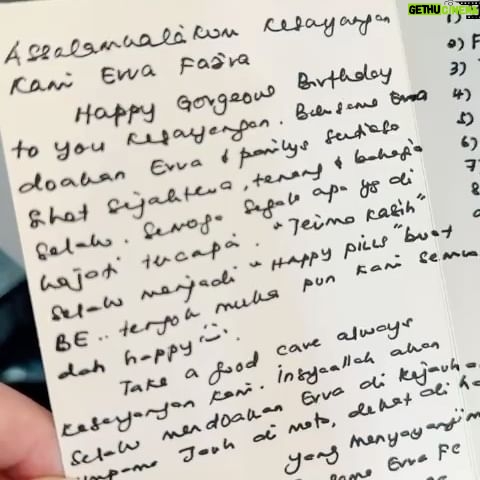 Assalamualaikum kesayangan
Kami Erra Fazira
Happy Gorgeous Birthday
to you kesayangan. Bersama Erra
doakan Erra & familys sentiasa
sihat sejahtera, tenang & bahagia
selalu. Semoga segala apa yg di
hajati tercapai. "Terima Kasih"
selalu menjadi "Happy pills" buat
BE.. tengok muka pun kami semua
dah happy
Take a good care always
kesayangan kami. Insyaallah akan
selalu mendoakan Erra di kejauhan
umpama Jauh di mata, dekat di h
yang menyayangi
Erra Fe
GETHUCINEMA
1)
2) F
3)
4)
5)
6)
7
8